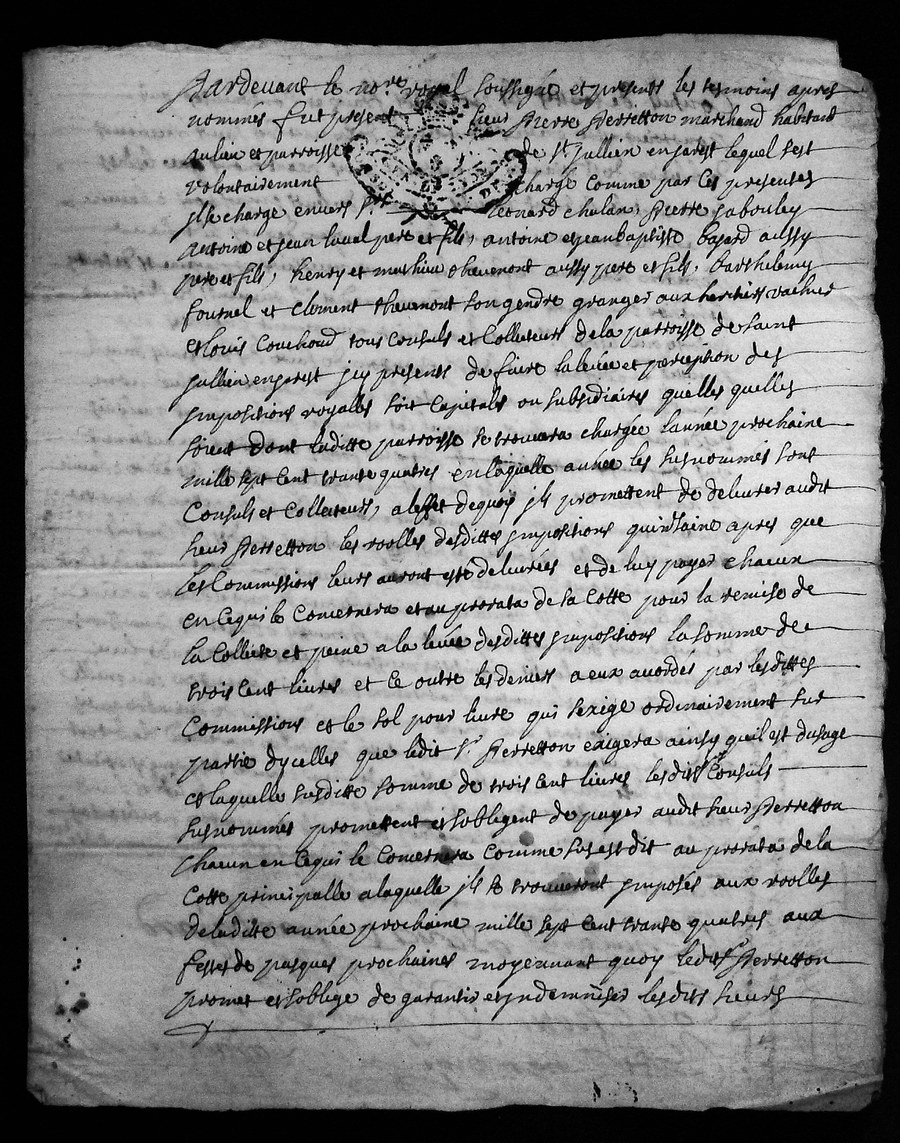 Pardevant le no.re royal soussigné et presents les tesmoins apres
nommés fut present sieur Pierre Perretton marchand habitant
au lieu et parroisse de St Jullien en jarest lequel sest
volontairement chargé comme par ces presentes
jl se charge envers Srs Leonard chulan, Pierre jabouley
Antoine et jean laval pere et fils, antoine et jean baptiste bajard aussy
pere et fils, henry et mathieu thevenont aussy pere et fils, Barthelemy
fournel et clement thevenont son gendre granger aux heritiers vachier
et louis couchoud tous consuls et collecteurs de la parroisse de saint
jullien en jarest jcy presents de faire la levée et perception des
jmpositions royalles soit capitale ou subsidiaires quelles quelles
soient dont laditte parroisse se trouvera chargée lannée prochaine
mille sept cent trante quatres en laquelle année les susnommés sont
Consuls et Collecteurs, a leffet dequoy jls promettent de delivrer audit
sieur Perretton les roolles desdittes jmpositions quinzaine apres que
les Commissions leurs auront esté delivrées et de luy payer chacun
en ce qui le concernera et au prorata de sa cotte pour la remise de
la collecte et peine a la levée desdittes jmpositions la somme de
trois cent livres et ce outre les deniers a eux accordés par lesdittes
Commissions et le sol pour livre qui sexige ordinairement sur
partie dycelles que ledit Sr Perretton exigera ainsy quil est dusage
et laquelle susditte somme de trois cent livres lesdits Srs Consuls
susnommés promettent et sobligent de payer audit sieur Perretton
chacun en ce qui le concernera comme sus est dit au prorata de la
cotte principalle a laquelle jls se trouveront jmposés aux roolles
de laditte année prochaine mille sept cent trante quatres aux
festes de pasques prochaines moyennant quoy ledit Sr Perretton
promet et soblige de garantir et jndemniser lesdits sieurs